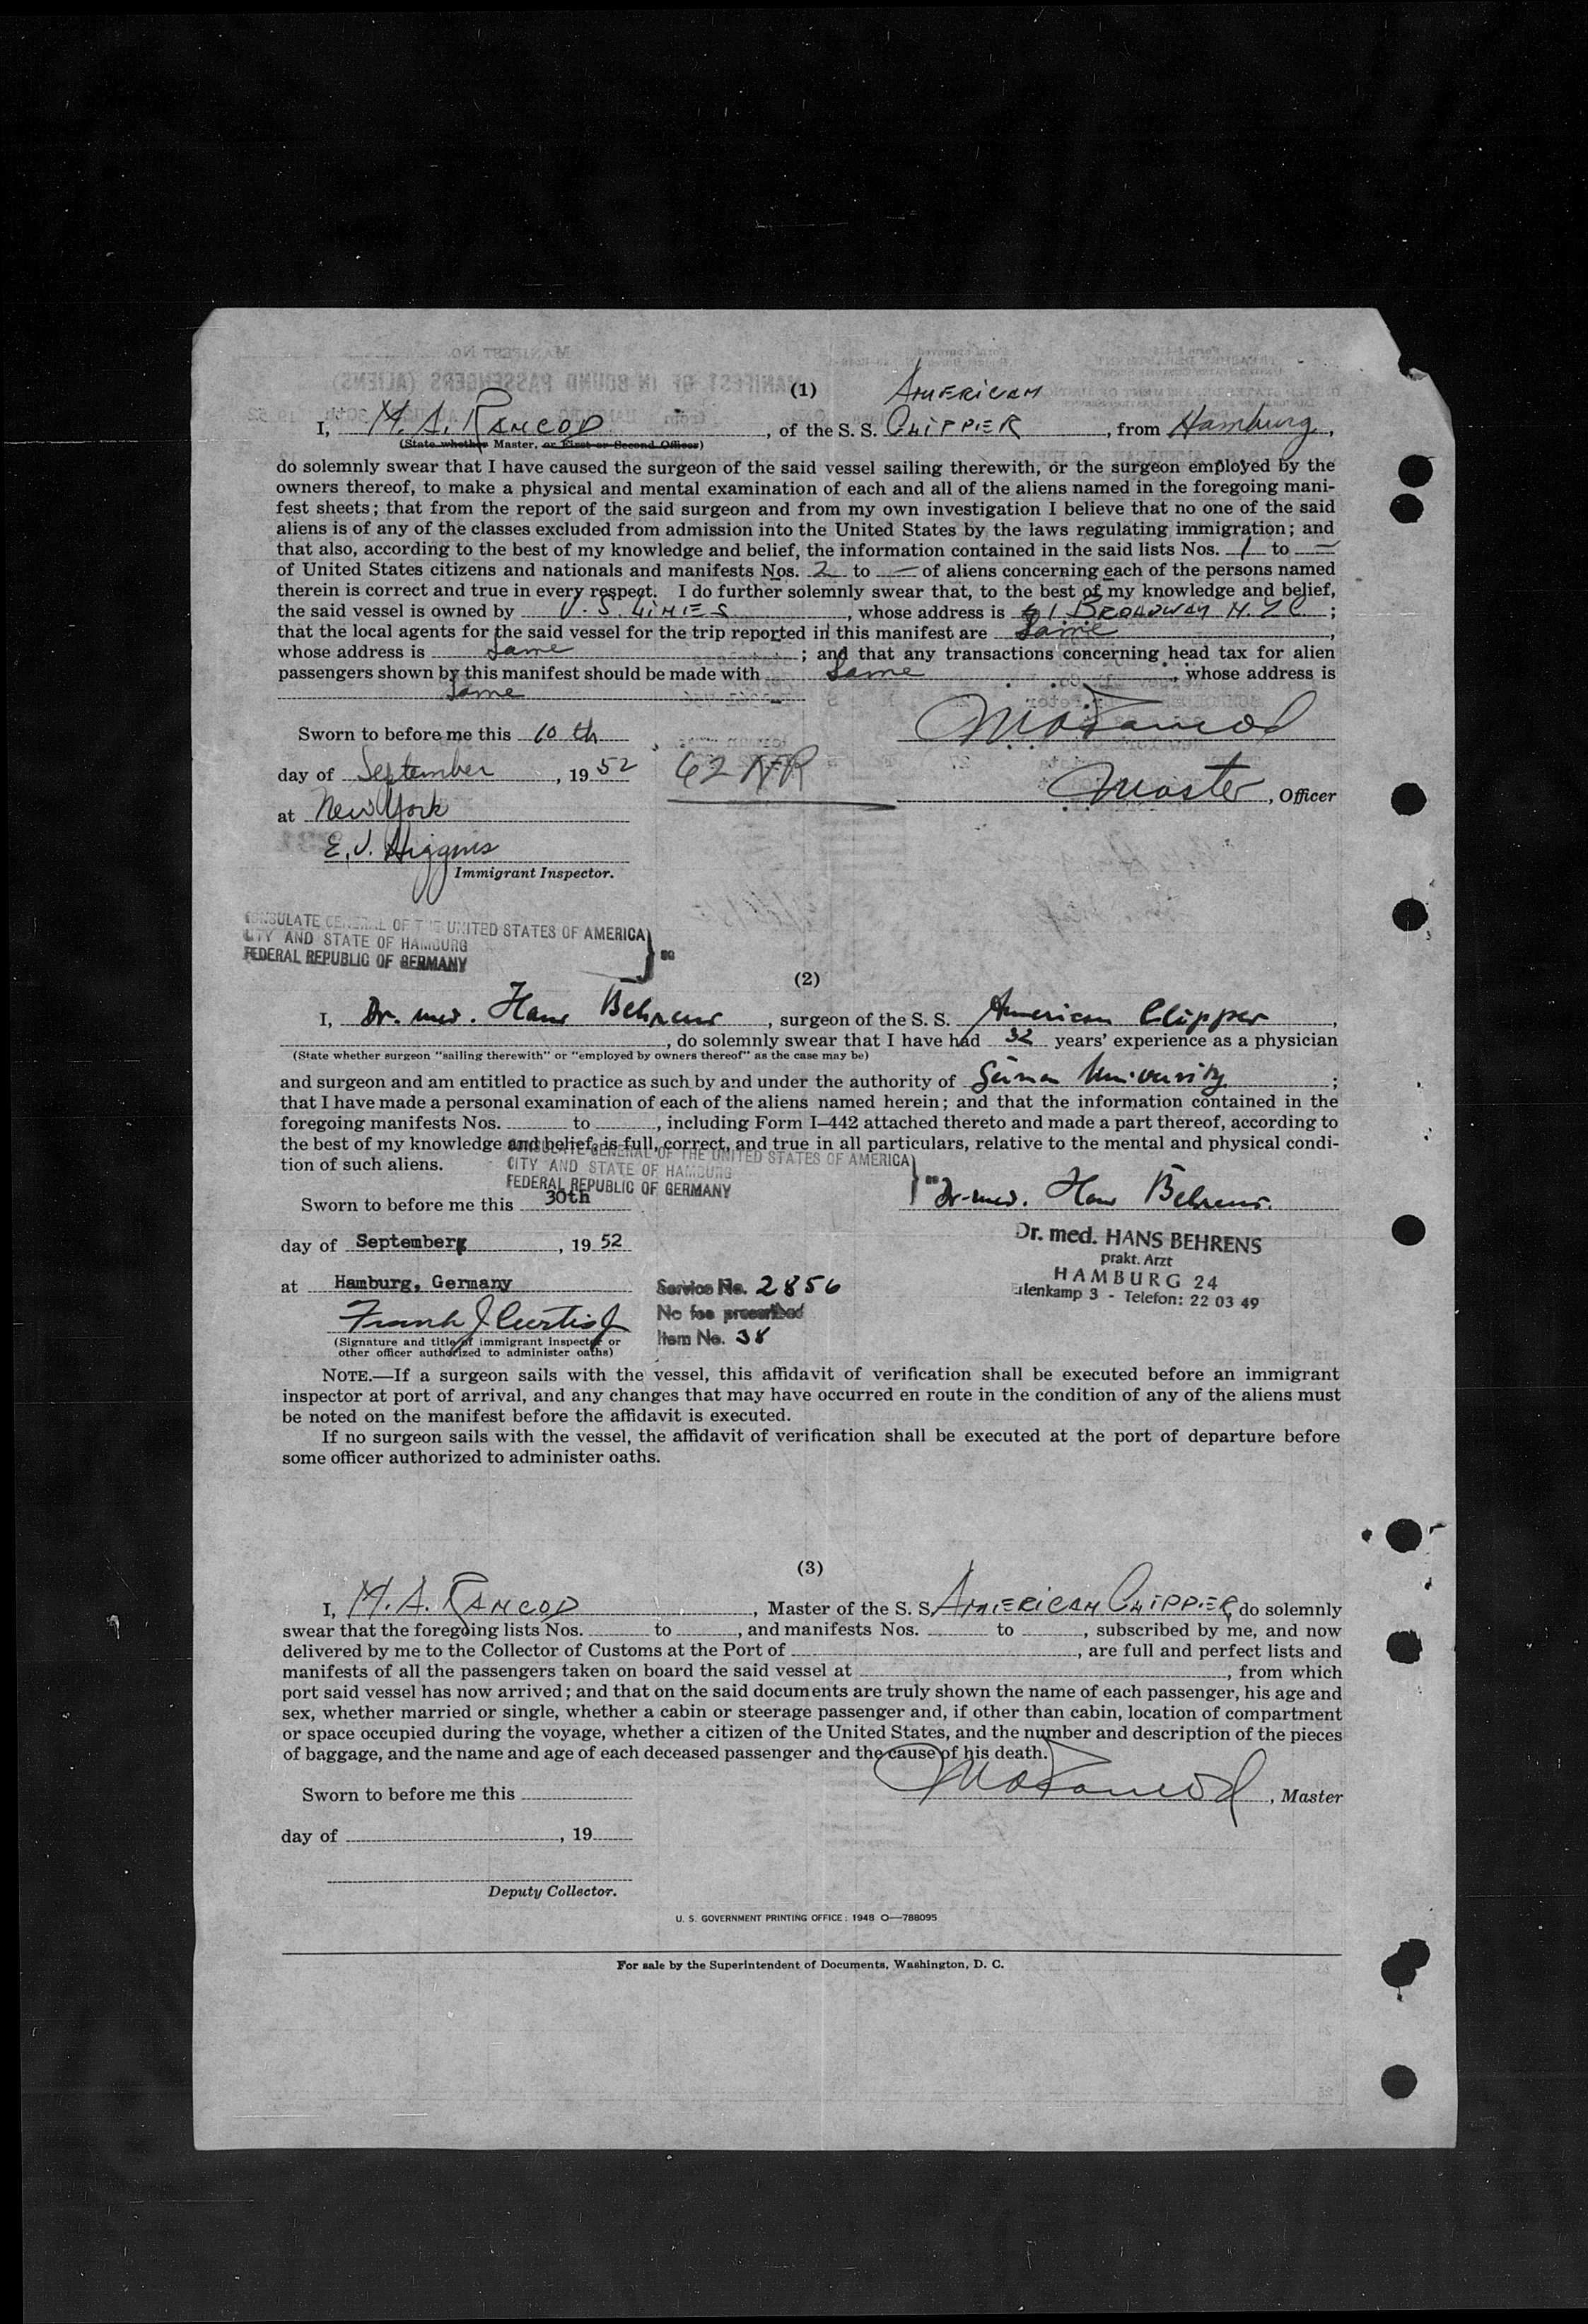 (1)
AMERICAN
I, M. A. RANCOD, of the S. S. CLIPPER, from Hamburg,
(State whether Master, or First or Second Officer)
do solemnly swear that I have caused the surgeon of the said vessel sailing therewith, or the surgeon employed by the
owners thereof, to make a physical and mental examination of each and all of the aliens named in the foregoing mani-
fest sheets; that from the report of the said surgeon and from my own investigation I believe that no one of the said
aliens is of any of the classes excluded from admission into the United States by the laws regulating immigration; and
that also, according to the best of my knowledge and belief, the information contained in the said lists Nos. 1 to —
of United States citizens and nationals and manifests Nos. 2 to — of aliens concerning each of the persons named
therein is correct and true in every respect. I do further solemnly swear that, to the best of my knowledge and belief,
the said vessel is owned by U. S. LINES, whose address is 1 BROADWAY N. Y C. ;
that the local agents for the said vessel for the trip reported in this manifest are Same,
whose address is Same ; and that any transactions concerning head tax for alien
passengers shown by this manifest should be made with Same, whose address is
Same
Sworn to before me this 10 th
day of September, 19 52 62 NR
Master, Officer
at New York
E. J. Higgins
Immigrant Inspector.
CONSULATE GENERAL OF THE UNITED STATES OF AMERICA
CITY AND STATE OF HAMBURG
FEDERAL REPUBLIC OF GERMANY
} ss
(2)
I, Dr. med. Hans Behrens, surgeon of the S. S. American Clipper,
, do solemnly swear that I have had 32 years' experience as a physician
(State whether surgeon "sailing therewith" or "employed by owners thereof" as the case may be)
and surgeon and am entitled to practice as such by and under the authority of University ;
that I have made a personal examination of each of the aliens named herein; and that the information contained in the
foregoing manifests Nos. to , including Form I–442 attached thereto and made a part thereof, according to
the best of my knowledge and belief, is full, correct, and true in all particulars, relative to the mental and physical condi-
tion of such aliens.
CONSULATE GENERAL OF THE UNITED STATES OF AMERICA
CITY AND STATE OF HAMBURG
FEDERAL REPUBLIC OF GERMANY
} ss
Dr. med. Hans Behrens.
Sworn to before me this 30th
Dr. med. HANS BEHRENS
prakt. Arzt
HAMBURG 24
Erlenkamp 3 - Telefon: 22 03 49
day of September, 19 52
at Hamburg, Germany
Service No. 2856
No fee prescribed
Item No. 38
Frank J Curtis Jr
(Signature and title of immigrant inspector or
other officer authorized to administer oaths)
NOTE.—If a surgeon sails with the vessel, this affidavit of verification shall be executed before an immigrant
inspector at port of arrival, and any changes that may have occurred en route in the condition of any of the aliens must
be noted on the manifest before the affidavit is executed.
If no surgeon sails with the vessel, the affidavit of verification shall be executed at the port of departure before
some officer authorized to administer oaths.
(3)
I, M. A. RANCOD, Master of the S. S. AMERICAN CLIPPER, do solemnly
swear that the foregoing lists Nos. to , and manifests Nos. to , subscribed by me, and now
delivered by me to the Collector of Customs at the Port of , are full and perfect lists and
manifests of all the passengers taken on board the said vessel at , from which
port said vessel has now arrived; and that on the said documents are truly shown the name of each passenger, his age and
sex, whether married or single, whether a cabin or steerage passenger and, if other than cabin, location of compartment
or space occupied during the voyage, whether a citizen of the United States, and the number and description of the pieces
of baggage, and the name and age of each deceased passenger and the cause of his death.
Sworn to before me this , Master
day of , 19
Deputy Collector.
U. S. GOVERNMENT PRINTING OFFICE: 1948 O—788095
For sale by the Superintendent of Documents, Washington, D. C.